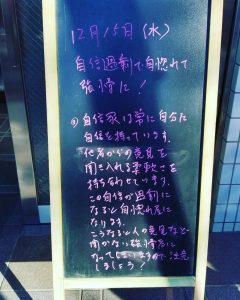 12月15日(水)
自信過剰で自惚れて
強情に！
◎自信家は単に自分に
自信を持っています。
他者からの意見を
聞き入れる柔軟さを
持ち合わせています。
この自信が過剰に
なると自惚れ屋に
なります。
こうなると人の意見など
聞かない強情者に
なってしまいますので注意
しましょう！